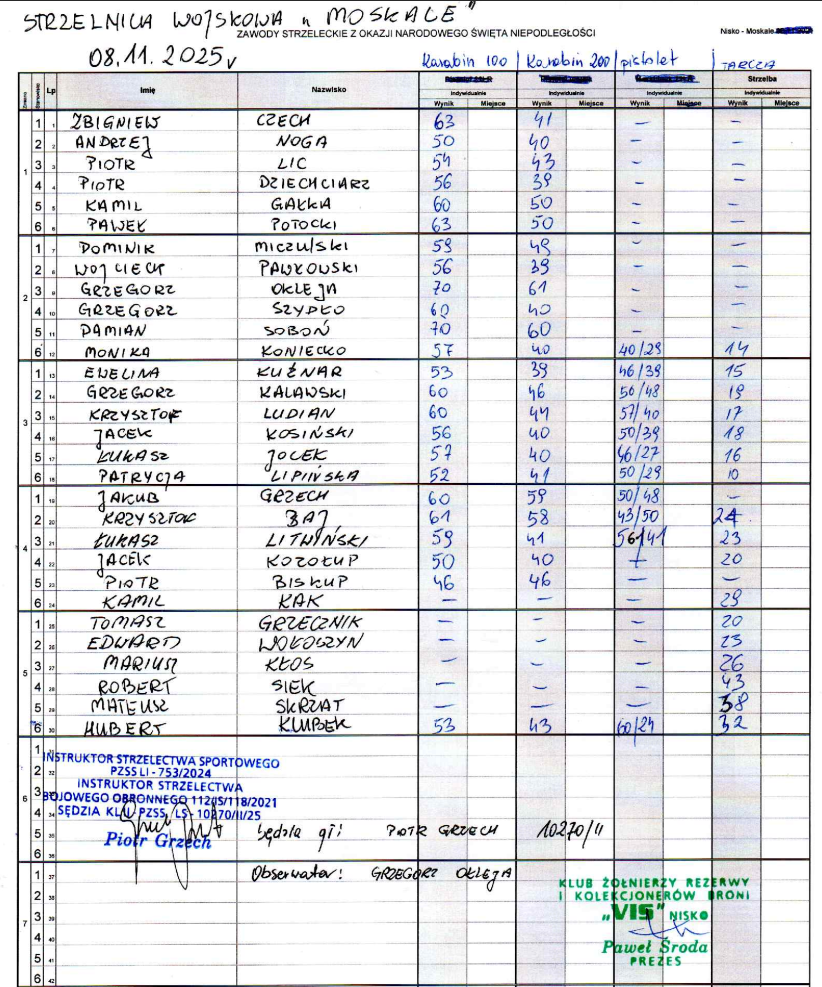 STRZELNICA WOJSKOWA „MOSKALE"
ZAWODY STRZELECKIE Z OKAZJI NARODOWEGO ŚWIĘTA NIEPODLEGŁOŚCI
Nisko - Moskale
08.11.2025r
Karabin 100 Karabin 200 pistolet TARCZA
Zmiana Stanowisko Lp Imię Nazwisko Strzelba
Indywidualnie Indywidualnie Indywidualnie Indywidualnie
Wynik Miejsce Wynik Miejsce Wynik Miejsce Wynik Miejsce
1
1 1 ZBIGNIEW CZECH 63 41 – –
2 2 ANDRZEJ NOGA 50 40 – –
3 3 PIOTR LIC 54 43 – –
4 4 PIOTR DZIECHCIARZ 56 39 – –
5 5 KAMIL GAŁKA 60 50 – –
6 6 PAWEŁ POTOCKI 63 50 – –
2
1 7 DOMINIK MICZULSKI 59 49 – –
2 8 WOJCIECH PAWKOWSKI 56 39 – –
3 9 GRZEGORZ OKLEJA 70 61 – –
4 10 GRZEGORZ SZYDŁO 60 40 – –
5 11 DAMIAN SOBOŃ 70 60 – –
6 12 MONIKA KONIECKO 57 40 40/29 14
3
1 13 EWELINA KUŹNAR 53 39 46/39 15
2 14 GRZEGORZ KALAWSKI 60 46 50/48 19
3 15 KRZYSZTOF LUDIAN 60 44 57/40 17
4 16 JACEK KOSIŃSKI 56 40 50/39 18
5 17 ŁUKASZ JOCEK 57 40 46/27 16
6 18 PATRYCJA LIPIŃSKA 52 41 50/29 10
4
1 19 JAKUB GRZECH 60 59 50/48 –
2 20 KRZYSZTOF BAJ 61 58 43/50 24
3 21 ŁUKASZ LITWIŃSKI 59 41 56/41 23
4 22 JACEK KOZOŁUP 50 40 – 20
5 23 PIOTR BISKUP 46 46 – –
6 24 KAMIL KAK – – – 29
5
1 25 TOMASZ GRZECZNIK – – – 20
2 26 EDWARD WOŁOSZYN – – – 23
3 27 MARIUSZ KŁOS – – – 26
4 28 ROBERT SIEK – – – 43
5 29 MATEUSZ SKRZAT – – – 38
6 30 HUBERT KLUBEK 53 43 60/24 32
6
1 31
2 32
3 33
4 34
5 35
6 36
INSTRUKTOR STRZELECTWA SPORTOWEGO
PZSS LI - 753/2024
INSTRUKTOR STRZELECTWA
BOJOWEGO OBRONNEGO 112/IS/118/2021
SĘDZIA KL. II PZSS, LS- 10270/II/25
Piotr Grzech
Sędzia gł: PIOTR GRZECH 10270/II
7
1 37
2 38
3 39
4 40
5 41
6 42
Obserwator: GRZEGORZ OKLEJA
KLUB ŻOŁNIERZY REZERWY
I KOLEKCJONERÓW BRONI
„VIS" NISKO
Paweł Środa
PREZES